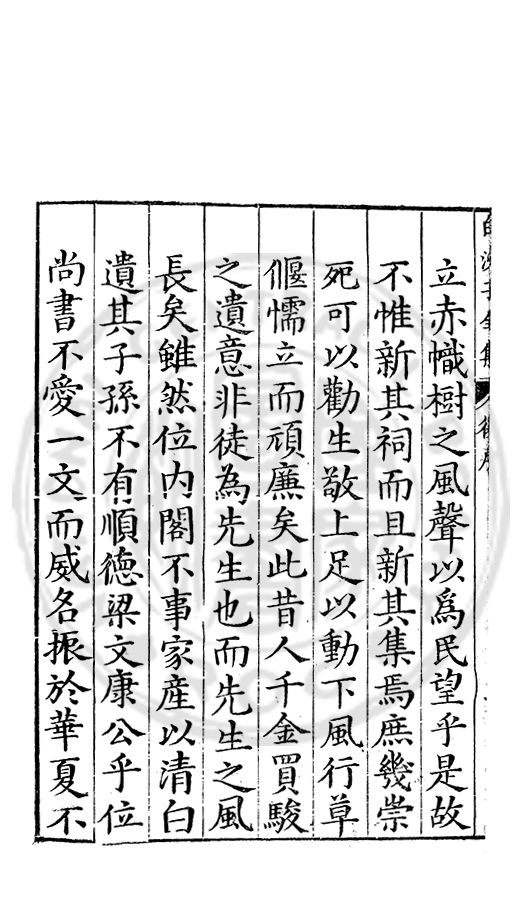 白沙子全集 後序
立赤幟樹之風聲以爲民望乎是故
不惟新其祠而且新其集焉庶幾崇
死可以勸生敬上足以動下風行草
偃懦立而頑廉矣此昔人千金買駿
之遺意非徒為先生也而先生之風
長矣雖然位内閣不事家產以清白
遺其子孫不有順德梁文康公乎位
尚書不愛一文而威名振於華夏不